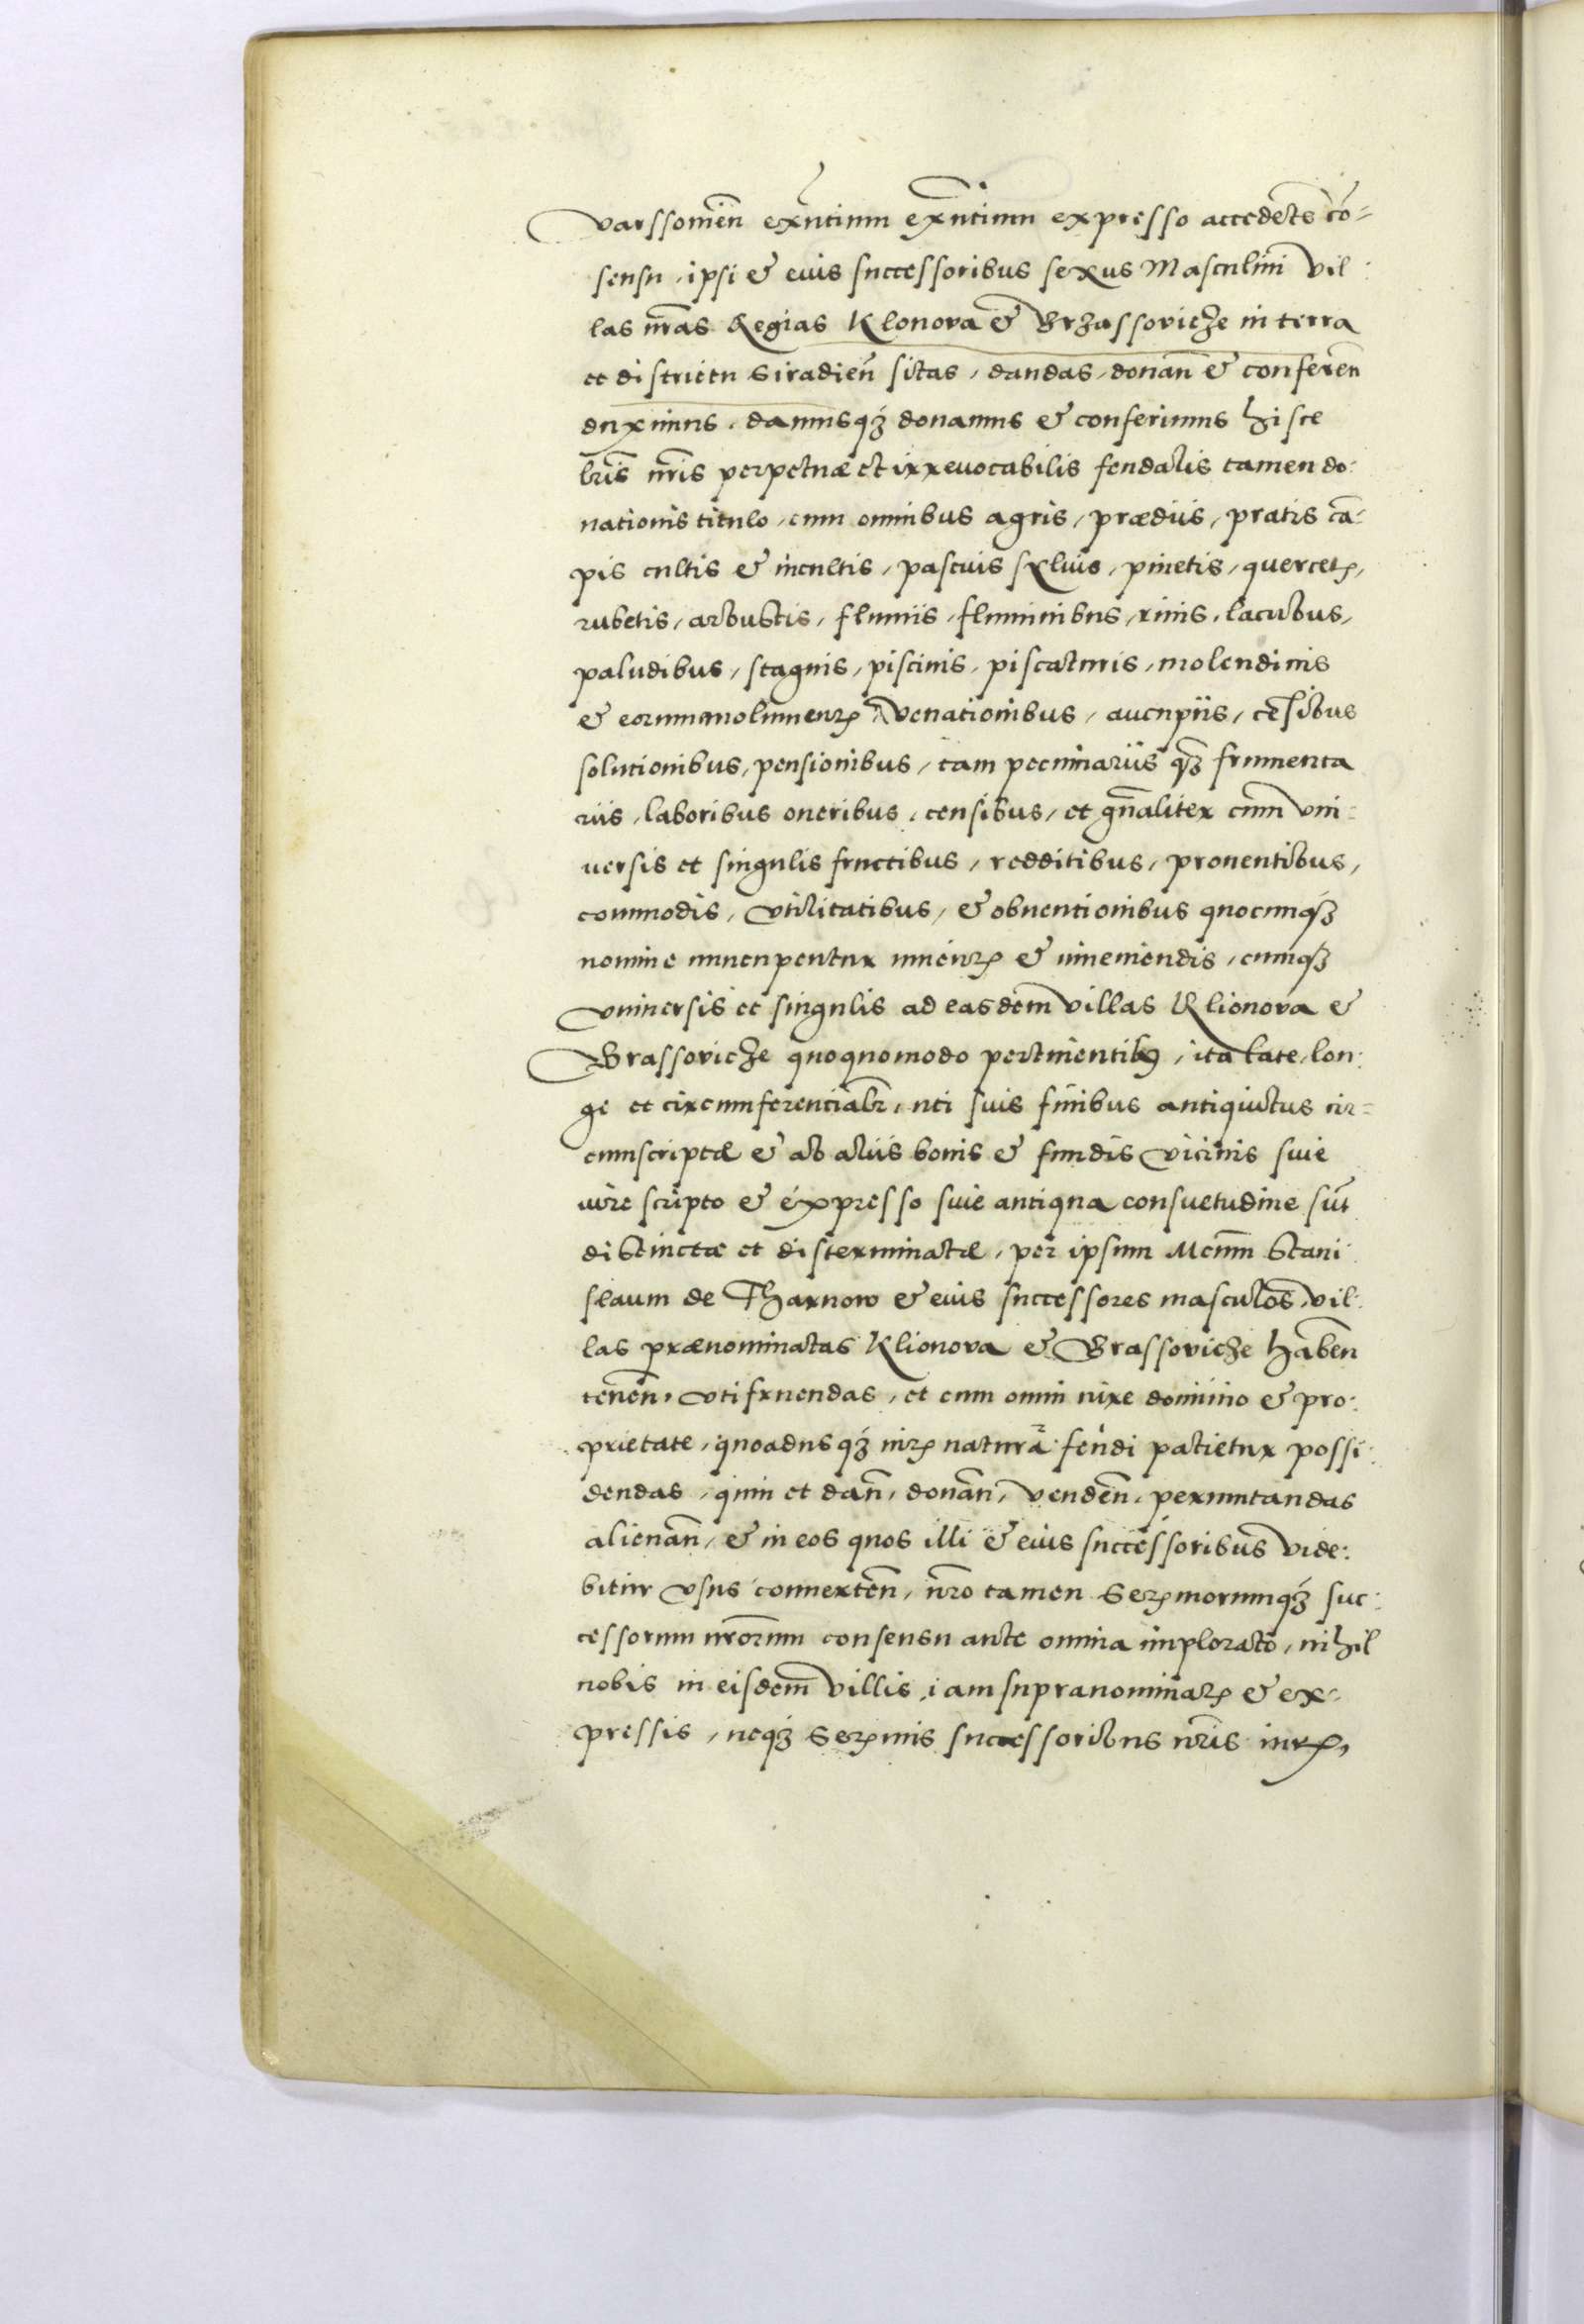 Varssouień exñtium exñtium expresso accedente cō-
sensu, ipsi & eius successoribus sexus Masculini vil:
las nr̃as Regias Klonova & Brzassoviche in terra
et districtu Siradień sitas, dandas, donań & conferen̄
duximus, damusq₃ donamus & conferimus hisce
lr̃is nr̃is perpetuæ et irreuocabilis feudalis tamen do:
nationis titulo, cum omnibus agris, prædiis, pratis cā:
pis cultis & incultis, pascuis sylvis, pinetis, quercetꝭ,
rubetis, arbustis, fluuiis, fluminibus, riuis, lacubus,
paludibus, stagnis, piscinis, piscaturis, molendinis
& eorum molumentꝭ venationibus, aucupiis, cēsibus
solutionibus, pensionibus, tam pecuniariis q₃ frumenta
riis, laboribus oneribus, censibus, et gn̄aliter cum vni:
uersis et singulis fructibus, redditibus, prouentibus,
commodis, vtilitatibus, & obuentionibus quocumq₃
nomine nuncupentur inuentꝭ & inueniendis, cumq₃
vniuersis et singulis ad easdem villas Klionova &
Brassoviche quoquomodo pertinentibꝰ, ita late, lon:
ge et circumferencialr̃, uti suis finibus antiquitus cir=
cumscriptæ & ab aliis bonis & fundis vicinis siue
iure scripto & expresso siue antiqua consuetudine sūt
distinctæ et disterminatæ, per ipsum Mcum̄ Stani:
slaum de Tharnow & eius successores masculos, vil:
las prænominatas Klionova & Brassoviche haben̄
tenen̄, vtifruendas, et cum omni iure dominio & pro:
prietate, quoadusq₃ iurꝭ naturā feudi patietur possi:
dendas, quin et dan̄, donan̄, venden̄, permutandas
alienan̄, & in eos quos illi & eius successoribus vide:
bitur vsus conuerten̄, nr̃o tamen Serꝭmorumq₃ suc:
cessorum nr̃orum consensu ante omnia implorato, nihil
nobis in eisdem villis iam supranominatꝭ & ex=
pressis, neq₃ Serꝭmis successoribus nr̃is iurꝭ,